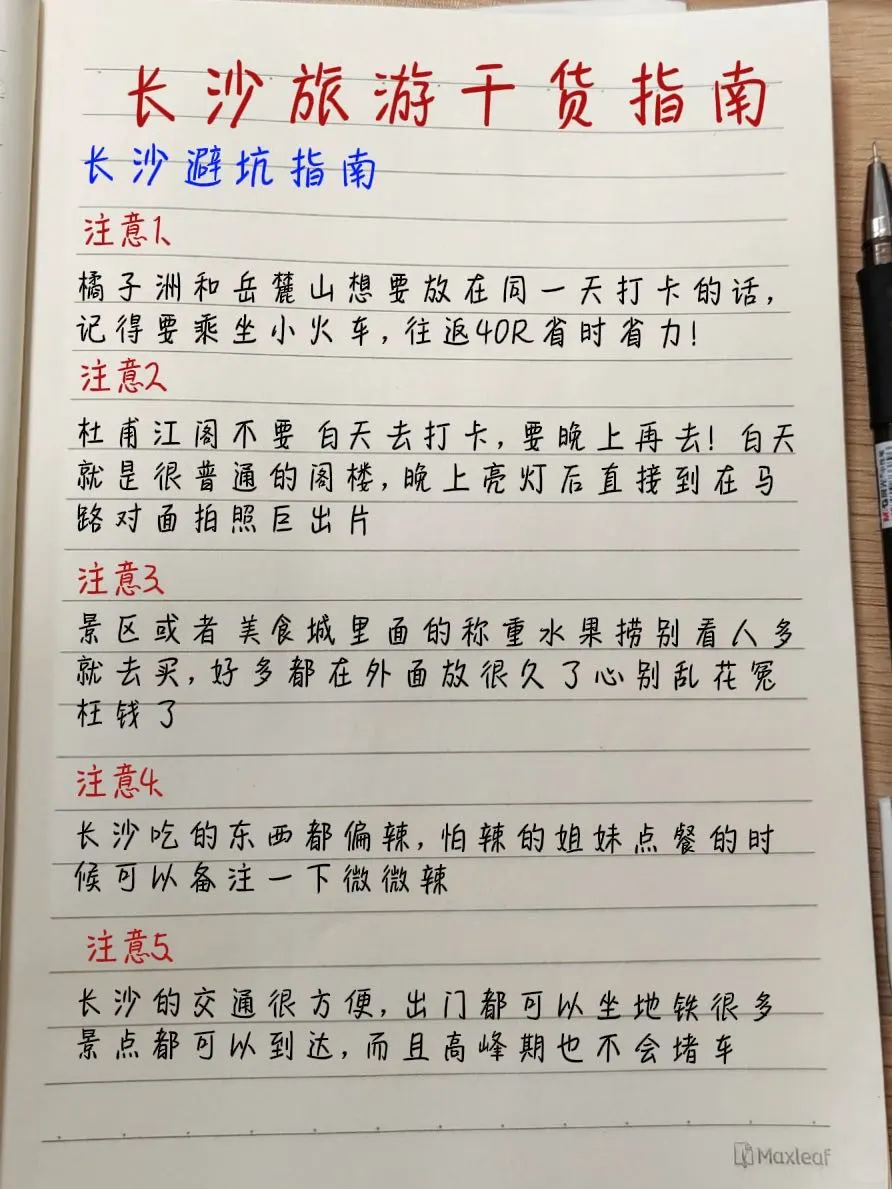 长沙旅游干货指南
长沙避坑指南
注意1、
橘子洲和岳麓山想要放在同一天打卡的话,
记得要乘坐小火车,往返40R省时省力!
注意2
杜甫江阁不要白天去打卡,要晚上再去!白天
就是很普通的阁楼,晚上亮灯后直接到在马
路对面拍照巨出片
注意3
景区或者美食城里面的称重水果捞别看人多
就去买,好多都在外面放很久了心别乱花冤
枉钱了
注意4
长沙吃的东西都偏辣,怕辣的姐妹点餐的时
候可以备注一下微微辣
注意5
长沙的交通很方便,出门都可以坐地铁很多
景点都可以到达,而且高峰期也不会堵车
Maxleaf